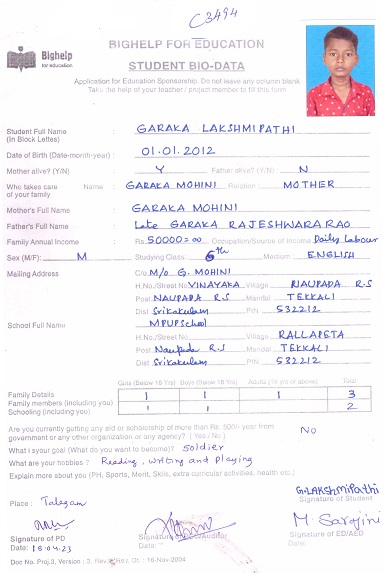 C3494
Bighelp
for education
BIGHELP FOR EDUCATION
STUDENT BIO-DATA
Application for Education Sponsorship. Do not leave any column blank
Take the help of your teacher / project member to fill this form
Student Full Name (In Block Lettes) : GARAKA LAKSHMIPATHI
Date of Birth (Date-month-year) : 01.01.2012
Mother alive? (Y/N) : Y Father alive? (Y/N) : N
Who takes care of your family Name : GARAKA MOHINI Relation : MOTHER
Mother's Full Name : GARAKA MOHINI
Father's Full Name : Late GARAKA RAJESHWARA RAO
Family Annual Income : Rs. 50000=00 Occupation/Source of Income Daily Labour
Sex (M/F) : M Studying Class : 6th Medium : ENGLISH
Mailing Address : C/o M/o G. MOHINI
H.No./Street No VINAYAKA Village NAUPADA R.S
Post NAUPADA R.S Mandal TEKKALI
Dist Srikakulam PIN 532212
School Full Name : MPUPSchool
H.No./Street No Village RALLAPETA
Post Naupada R.S Mandal TEKKALI
Dist Srikakulam PIN 532212
Girls (Below 18 Yrs) Boys (Below 18 Yrs) Adults (18 yrs or above) Total
Family Details
Family members (including you) : 1 1 1 3
Schooling (including you) : 1 1 2
Are you currently getting any aid or scholarship of more than Rs. 500/- year from
government or any other organization or any agency? ( Yes / No ) No
What is your goal (What do you want to become)? Soldier
What are your hobbies? Reading, writing and playing
Explain more about you (PH, Sports, Merit, Skills, extra curricular activities, health etc.)
Place : Talagam
G.LAKSHMIPathi
Signature of Student
M. Sarojini
Signature of PD
Auditor
Signature of ED/AED
Date 18.04.23 Date: Date:
Doc No. Proj.3, Version : 3, Rev. 16-Nov-2004